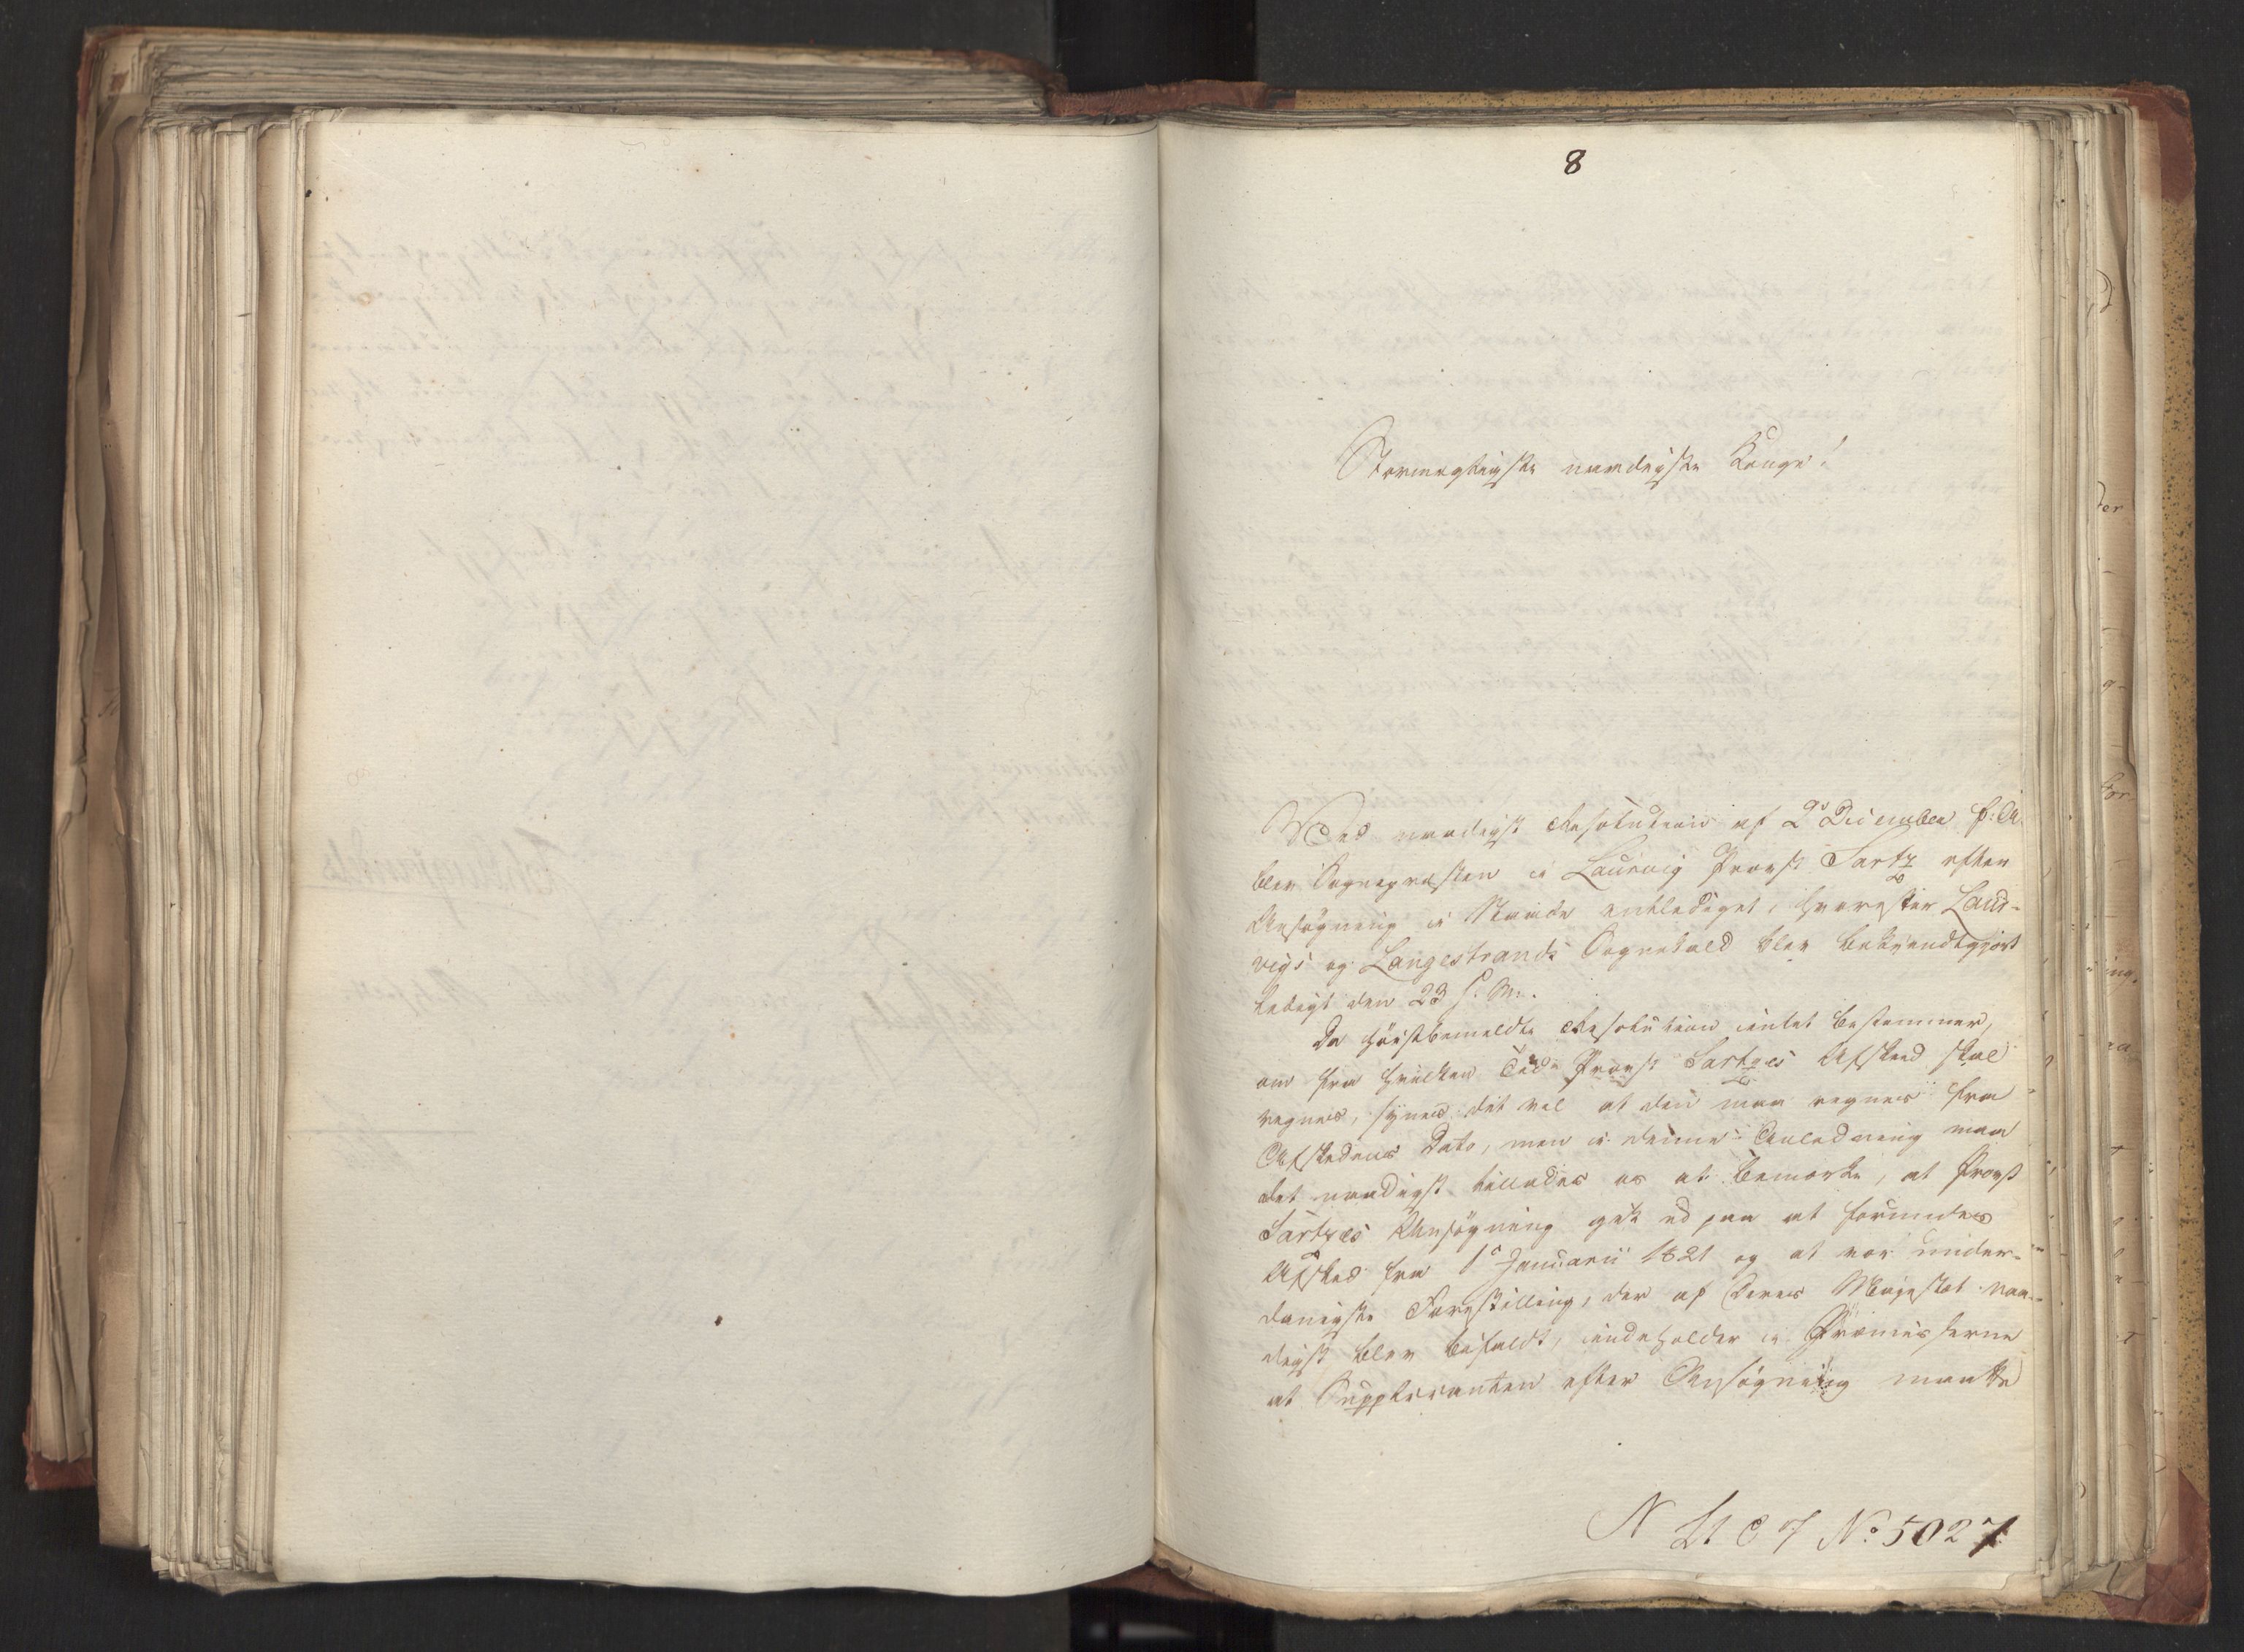 8
Stormægtigste naadigste Konge!
Ved naadigst Resolution af 2den December f: A.
blev Sognepresten i Laurvig Provst Sartz efter
Ansøgning i Naade entlediget, hvorefter Laur-
vigs og Langestrands Sognekald blev bekjendtgjort
ledigt den 23 s. M..
Da høistbemeldte Resolution intet bestemmer,
om fra hvilken Tid Provst Sartzes Afskeed skal
regnes, synes det vel at den maa regnes fra
Afskedens Dato, men i denne Anledning maa
det naadigst tillades os at bemærke, at Provst
Sartzes Ansøgning gik ud paa at forundes
Afsked fra 1ste Januarii 1821 og at vor under-
danigste Forestilling, der af Deres Majestæt naa-
digst blev bifaldt, indeholder i Præmisserne
at Supplicanten efter Ansøgning maatte
N Lt C 7 No. 5027